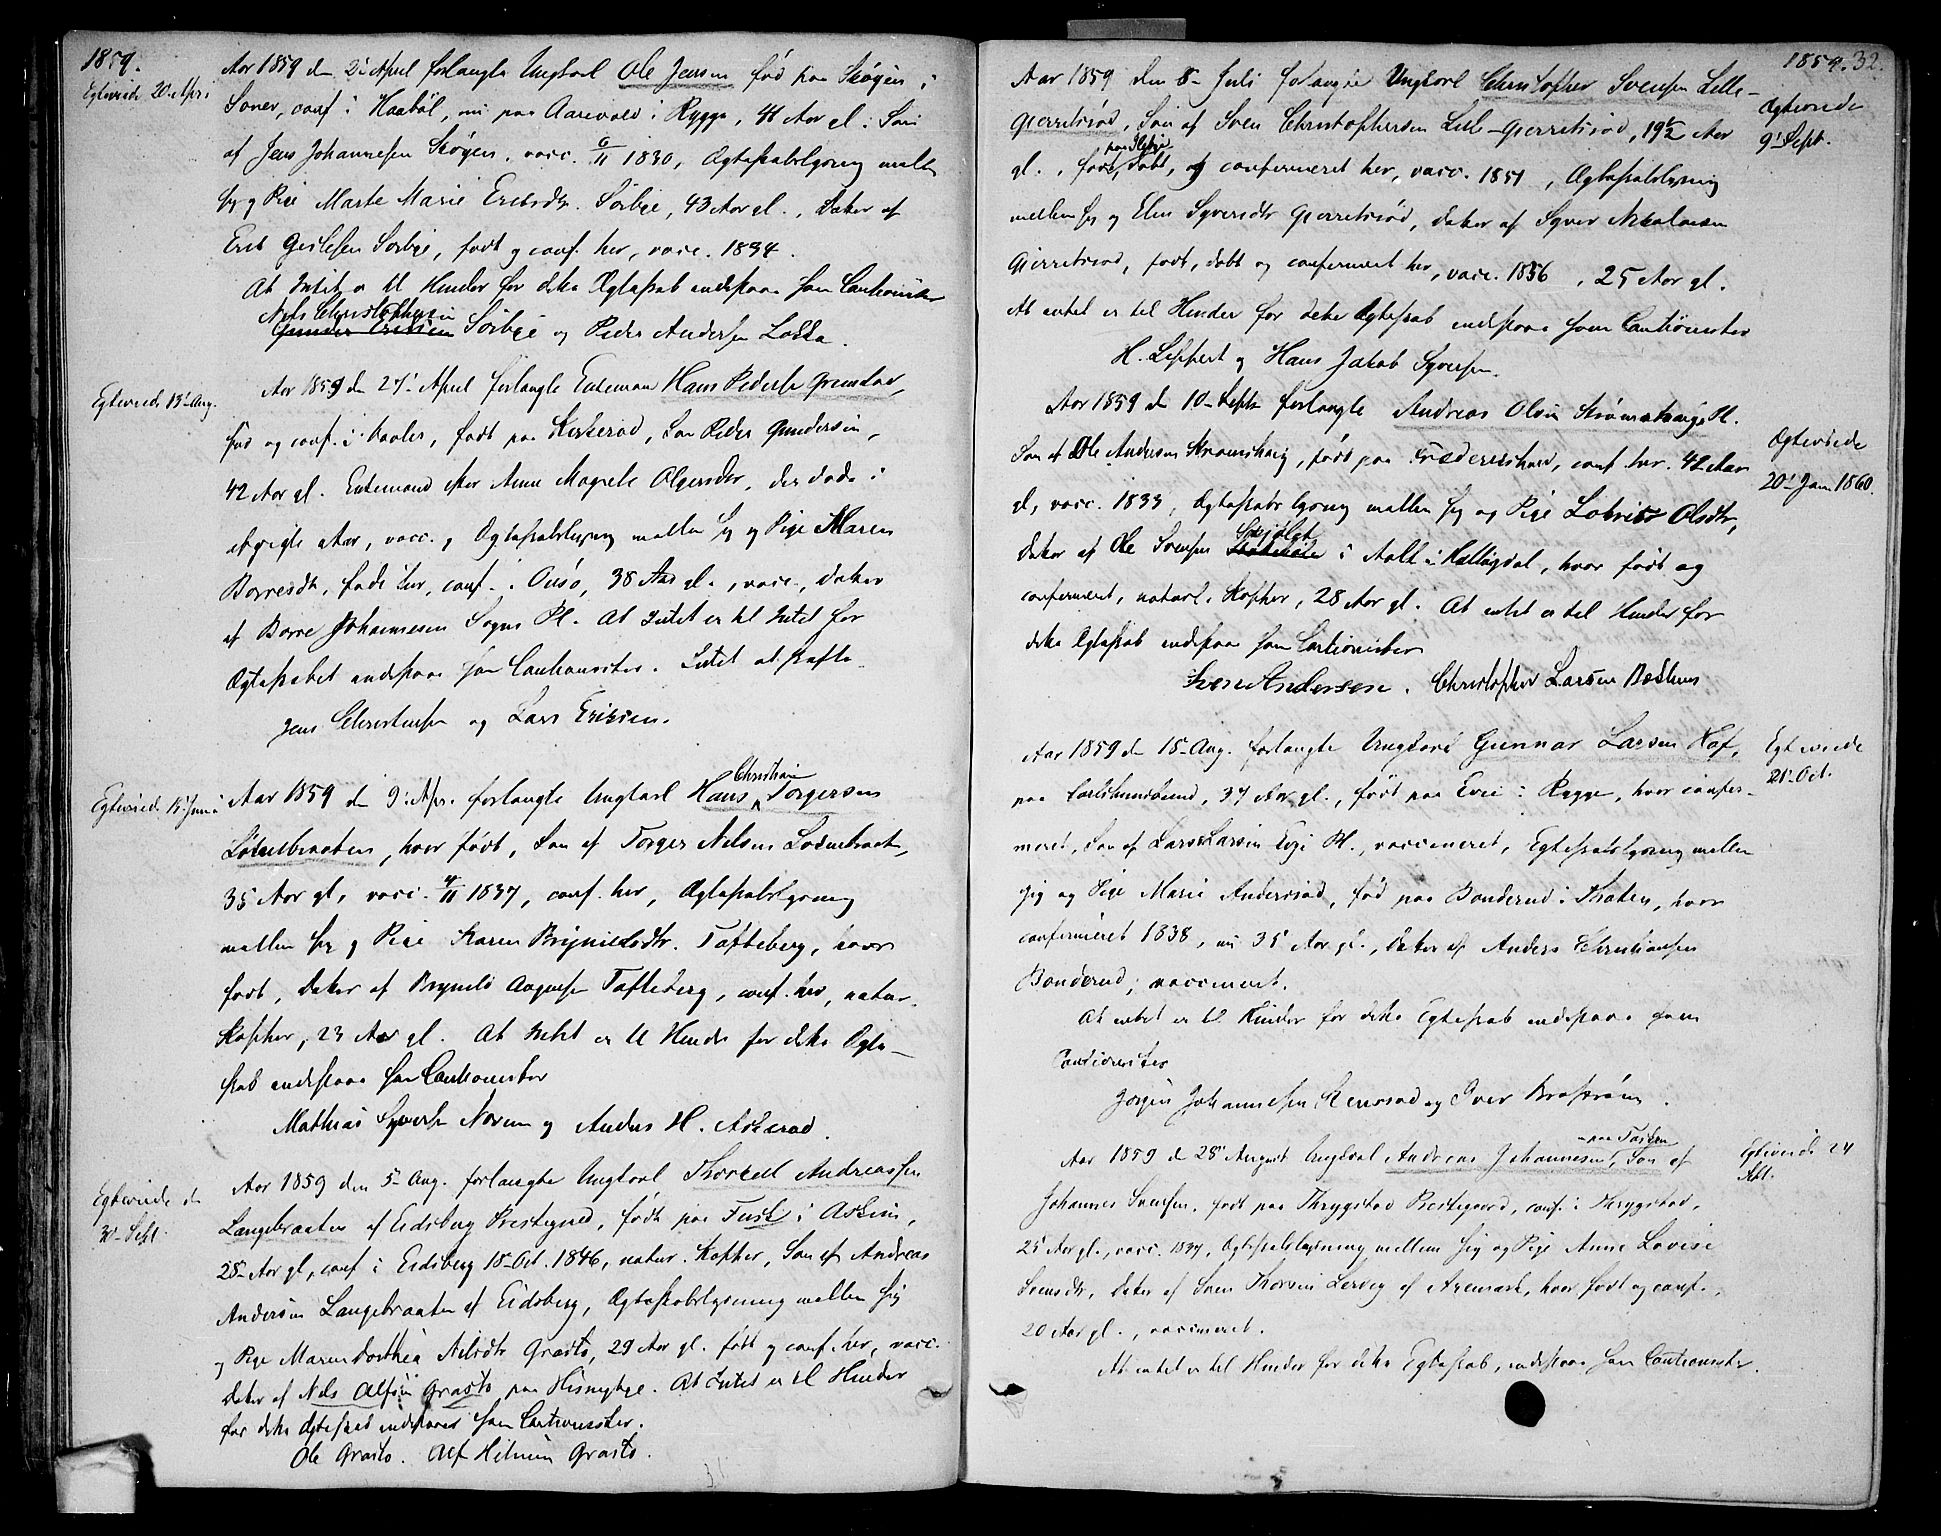 1859.
Egteviede 20. Apr:
Aar 1859 den 2' April forlangte Ungkarl Ole Jensen fød paa Skøgen i
Soner, conf. i Haabøl, nu paa Aarevold i Rygge, 41 Aar gl. Søn
af Jens Johannesen Skøgen, vacc. 6/11 1830, Ægteskabslysning mellem
sig og Pige Marte Marie Ericsdtr. Sørbye, 43 Aar gl., Datter af
Erik Gerlesen Sørbye, født og conf. her, vacc. 1834.
At Intet er til Hinder for dette Ægteskab indestaae som Cautionister
Nils Christophersen
Gunder Eriksen Sørbye og Peder Andersen Lokka.
Egteviede 13' Aug.
Aar 1859 den 27' April forlangte Enkemand Hans Pedersen Grimstad,
fød og conf. i Vaaler, født paa Kirkerød, Søn Peder Gundersen,
42 Aar gl. Enkemand efter Anne Magrete Olgersdtr, der døde i
afvigte Aar, vacc., og Ægteskabslysning mellem sig og Pige Maren
Borresdtr, født her, conf. i Onsø, 38 Aar gl., vacc., Datter
af Borre Johannesen Sogns Pl. At Intet er til Intet for
Ægteskabet indestaae som Cautionister. Intet at skifte.
Jens Christensen og Lars Eriksen.
Egteviede 18' Juni
Aar 1859 den 9' Apr. forlangte Ungkarl Hans Torgersen
Christian
Lødenbraaten, hvor født, Søn af Torger Nilsen Lødenbraaten,
35 Aar gl, vacc. 4/11 1837, conf. her, Ægteskabslysning
mellem sig og Pige Karen Brynildsdtr. Tofteberg, hvor
født, Datter af Brynild Aagesen Tofteberg, conf. her, naturl.
Kopper, 23 Aar gl. At Intet er til Hinder for dette Ægte-
skab indestaae som Cautionister
Mathias Syversen Norum og Anders H. Askerød.
Egteviede den
30' Sept.
Aar 1859 den 5' Aug. forlangte Ungkarl Thorvald Andreassen
Langebraaten af Eidsberg Prestegjeld, født paa Fusk i Askim,
28' Aar gl, conf i Eidsberg 18' Oct. 1846, natur. Kopper, Søn af Andreas
Andersen Langebraaten af Eidsberg, Ægteskabslysning mellem sig
og Pige Maren Dorthea Nilsdtr Graasto, 29 Aar gl. født og conf. her, vacc.
Datter af Nils Alfsen Graasto paa Hisneghye. At Intet er til Hinder
for dette Ægteskab indestaaer som Cautionister.
Ole Graasto. Alf Hilmen Graasto.
1859. 32.
Aar 1859 den 8' Juli forlangte Ungkarl Christopher Svensen Lille-
Gjerretsrød, Søn af Sven Christophersen Lille-Gjerretsrød, 19 1/2 Aar
gl., født, døbt, og confirmeret her, vacc. 1851, Ægteskabslysning
mellem sig og Elen Syversdtr Gjerretsrød, Datter af Syver Nikolaisen
Gjerretsrød, født, døbt og confirmeret her, vacc. 1836, 25 Aar gl.
At intet er til Hinder for dette Ægteskab indestaae som Cautionister
H. Leppert og Hans Jakob Syversen.
Ægteviede
9' Sept.
Aar 1859 den 10' Sept. forlangte Andreas Olsen Strømshaug Pl.
Søn af Ole Andersen Strømshaug, født paa Frederikshald, conf. her. 42 Aar
gl, vacc. 1833, Ægteskabs lysning mellem sig og Pige Lovise Olsdtr,
Datter af Ole Svensen Skjølet i Aall i Hallingdal, hvor født og
confirmeret, naturl. Kopper, 28 Aar gl. At intet er til Hinder for
dette Ægteskab indestaae som Cautionister
Sven Andersen. Christopher Larsen Bækhus
Ægteviede
20' Jan. 1860.
Aar 1859 den 15' Aug. forlangte Ungkarl Gunnar Larsen Haf,
paa Carlshuusbund, 37 Aar gl., født paa Evie i Rygge, hvor confir-
meret, Søn af Lars Larsen Evje Pl., vaccineret, Egteskabslysning mellem
sig og Pige Marie Andersdtr, fød paa Bonderud i Skoten, hvor
confirmeret 1838, nu 35 Aar gl., Datter af Anders Christiansen
Bonderud, vaccineret.
At intet er til Hinder for dette Egteskab indestaae som
Cautionister
Jørgen Johannesen Renerød og Iver Brostrøm.
Egteviede
21' Oct.
Aar 1859 d 28' August Ungkarl Andreas Johannesen, Søn af
Johannes Svensen, født paa Thrygstad Prestegaard, conf. i Thrygstad,
25 Aar gl., vacc. 1837, Ægteskabslysning mellem sig og Pige Anne Lovise
Svensdtr, Datter af Sven Thorsen Lervig af Aremark, hvor født og conf.,
20 Aar gl., vaccineret.
At intet er til Hinder for dette Egteskab, indestaae som Cautionister.
Egteviede 24
Sept.